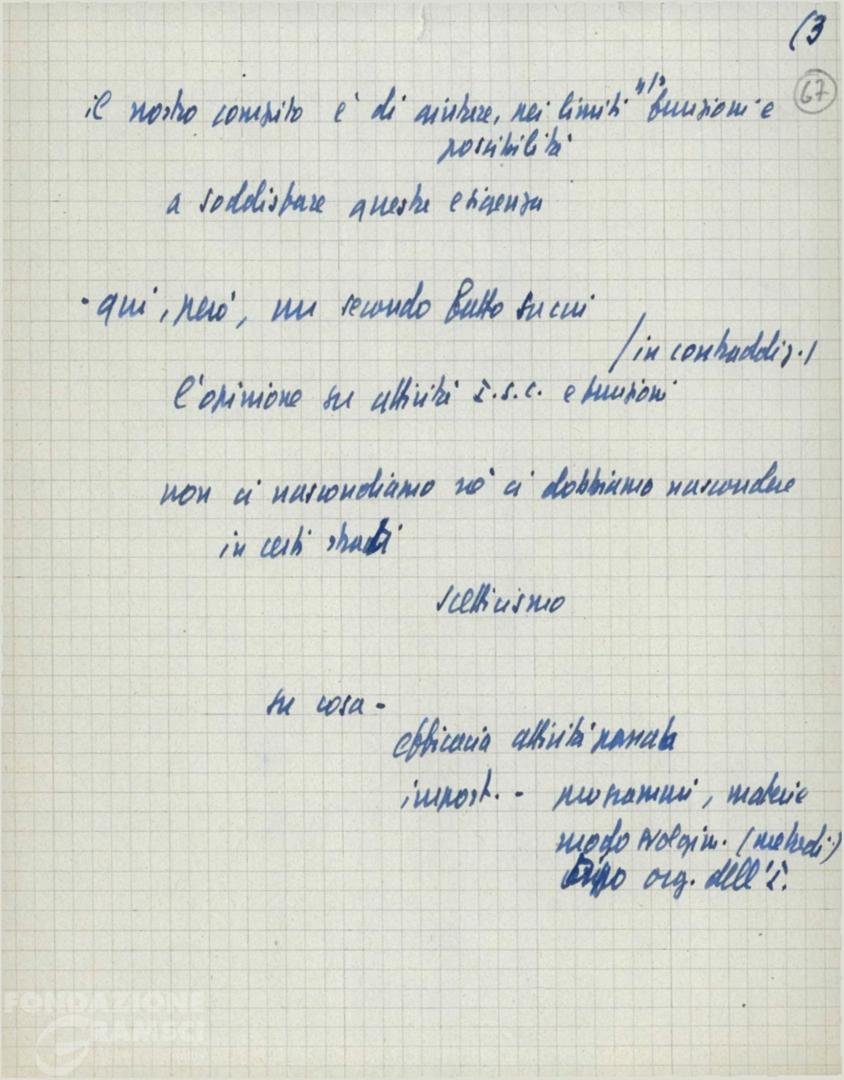 (3
67
il nostro compito è di aiutare, nei limiti ns/ funzioni e
possibilità
a soddisfare questa esigenza
- qui, però, un secondo fatto su cui
/in contraddiz./
l'opinione su attività I.S.C. e funzioni
non ci nascondiamo nè ci dobbiamo nascondere
in certi strati
scetticismo
su cosa -
efficacia attività passata
impost. - programmi, materie
modo svolgim. (metodi)
tipo org. dell'I.
FONDAZIONE
GRAMSCI